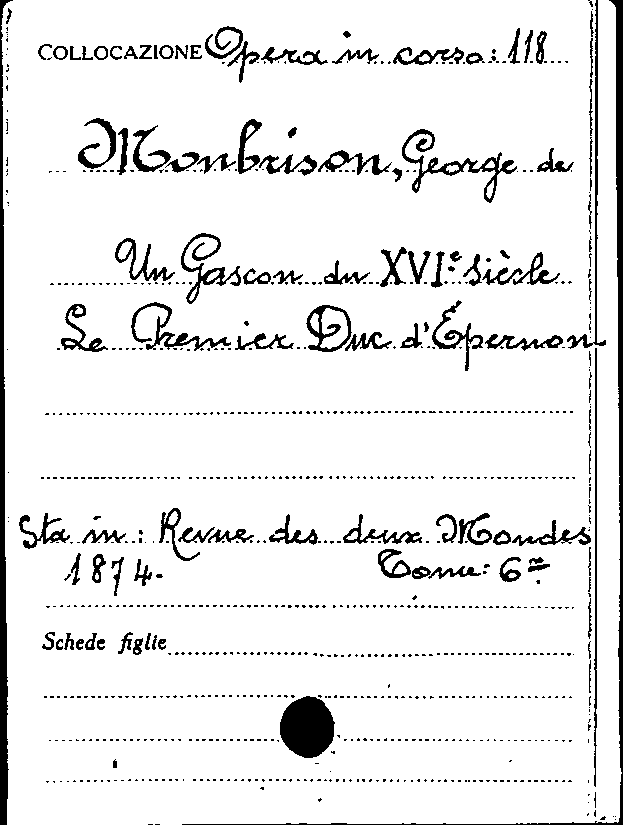 COLLOCAZIONE Opera in corso: 118
Monbrison, George de
Un Gascon du XVIe siècle
Le Premier Duc d'Épernon
Sta in: Revue des deux Mondes
1874. Tome: 6me
Schede figlie